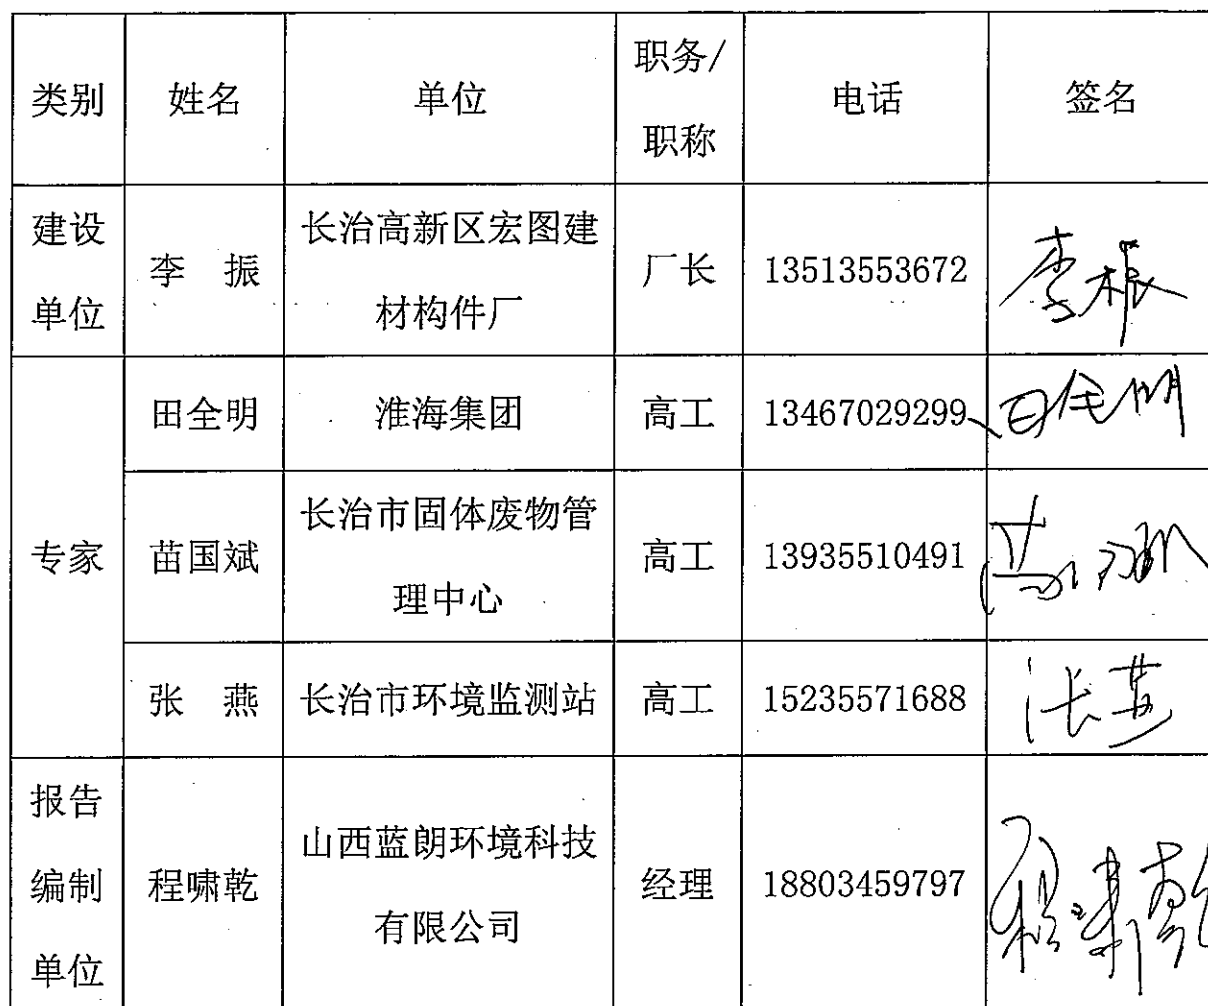 类别 姓名 单位 职务/
职称 电话 签名
建设
单位 李 振 长治高新区宏图建
材构件厂 厂长 13513553672 李振
专家 田全明 淮海集团 高工 13467029299 田全明
苗国斌 长治市固体废物管
理中心 高工 13935510491 苗国斌
张 燕 长治市环境监测站 高工 15235571688 张燕
报告
编制
单位 程啸乾 山西蓝朗环境科技
有限公司 经理 18803459797 程啸乾